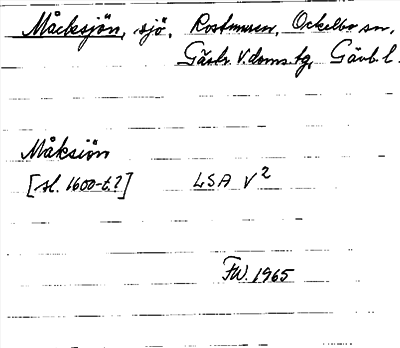 Måcksjön, sjö, Rostmuren, Ockelbo sn,
Gästr. V. doms. tg, Gävleb. l.
Måksiön
[sl. 1600-t.?] LSA V²
FW. 1965